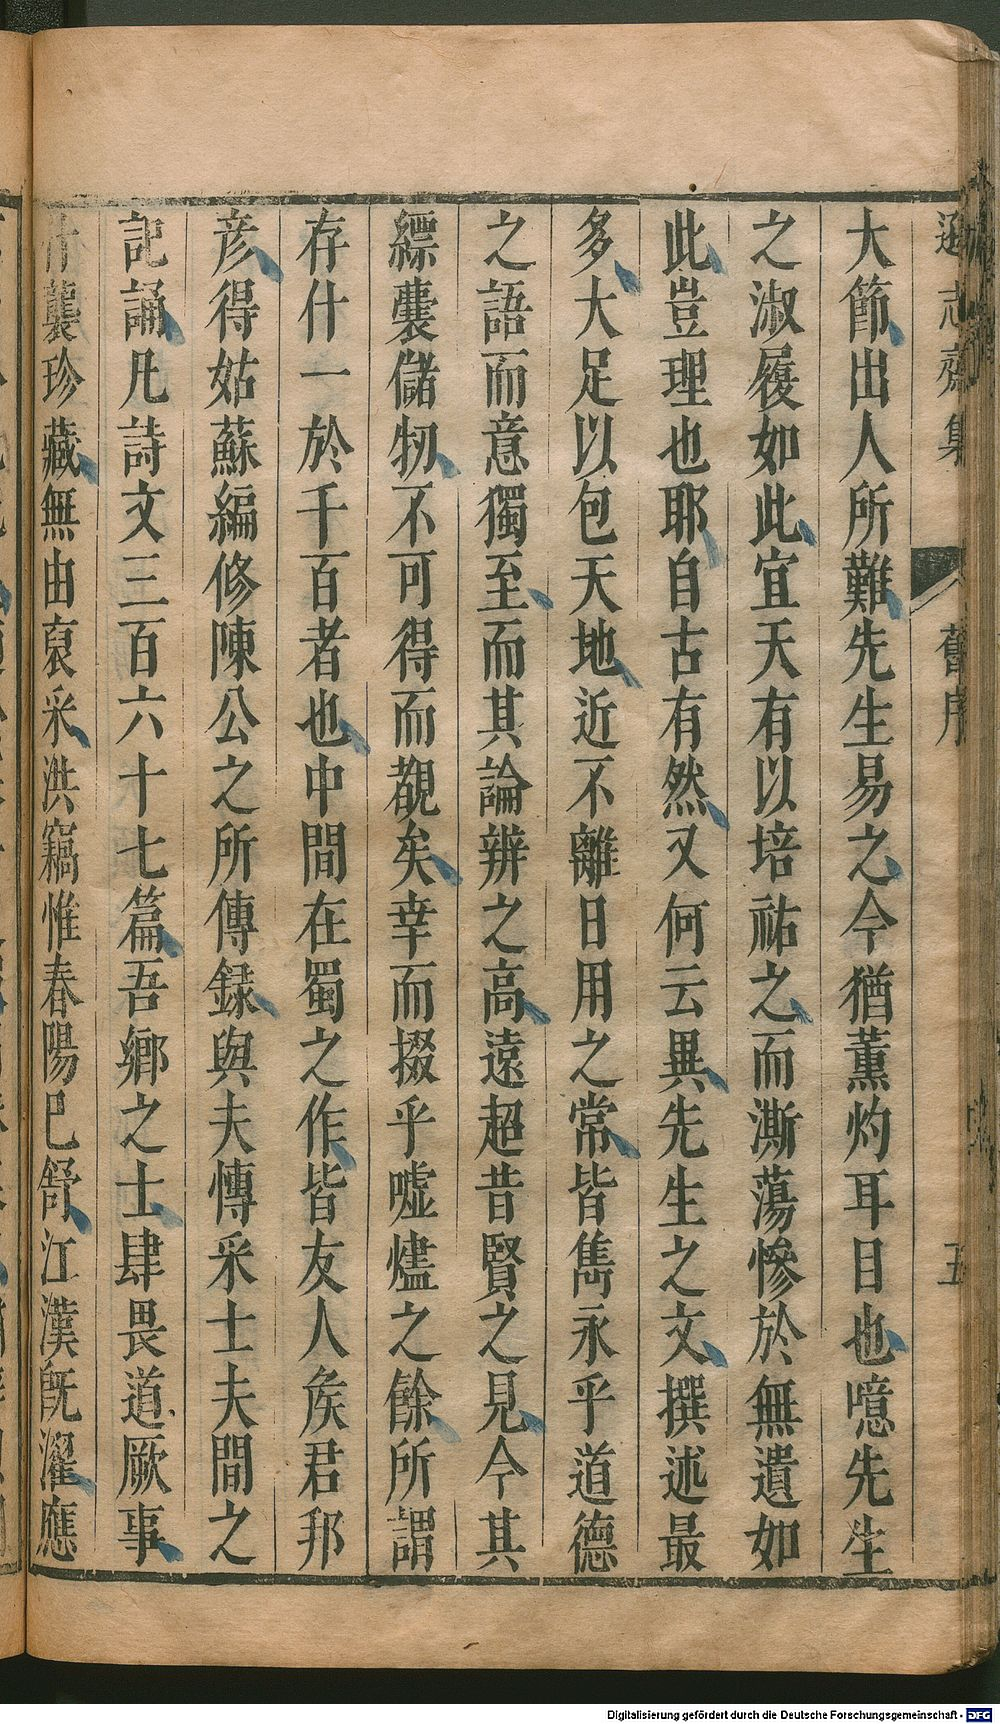 遜志齋集 舊序 五
大節出人所難先生易之今猶薰灼耳目也噫先生
之淑履如此宜天有以培祐之而澌蕩慘於無遺如
此豈理也耶自古有然又何云異先生之文撰述最
多大足以包天地近不離日用之常皆雋永乎道德
之語而意獨至而其論辨之高遠超昔賢之見今其
縹囊儲牣不可得而覩矣幸而掇乎嘘燼之餘所謂
存什一於千百者也中間在蜀之作皆友人矦君邦
彦得姑蘇編修陳公之所傳録與夫慱采士夫間之
記誦凡詩文三百六十七篇吾鄉之士肆畏道厥事
什襲珍藏無由裒采洪竊惟春陽巳舒江漢旣濯應
Digitalisierung gefördert durch die Deutsche Forschungsgemeinschaft - DFG